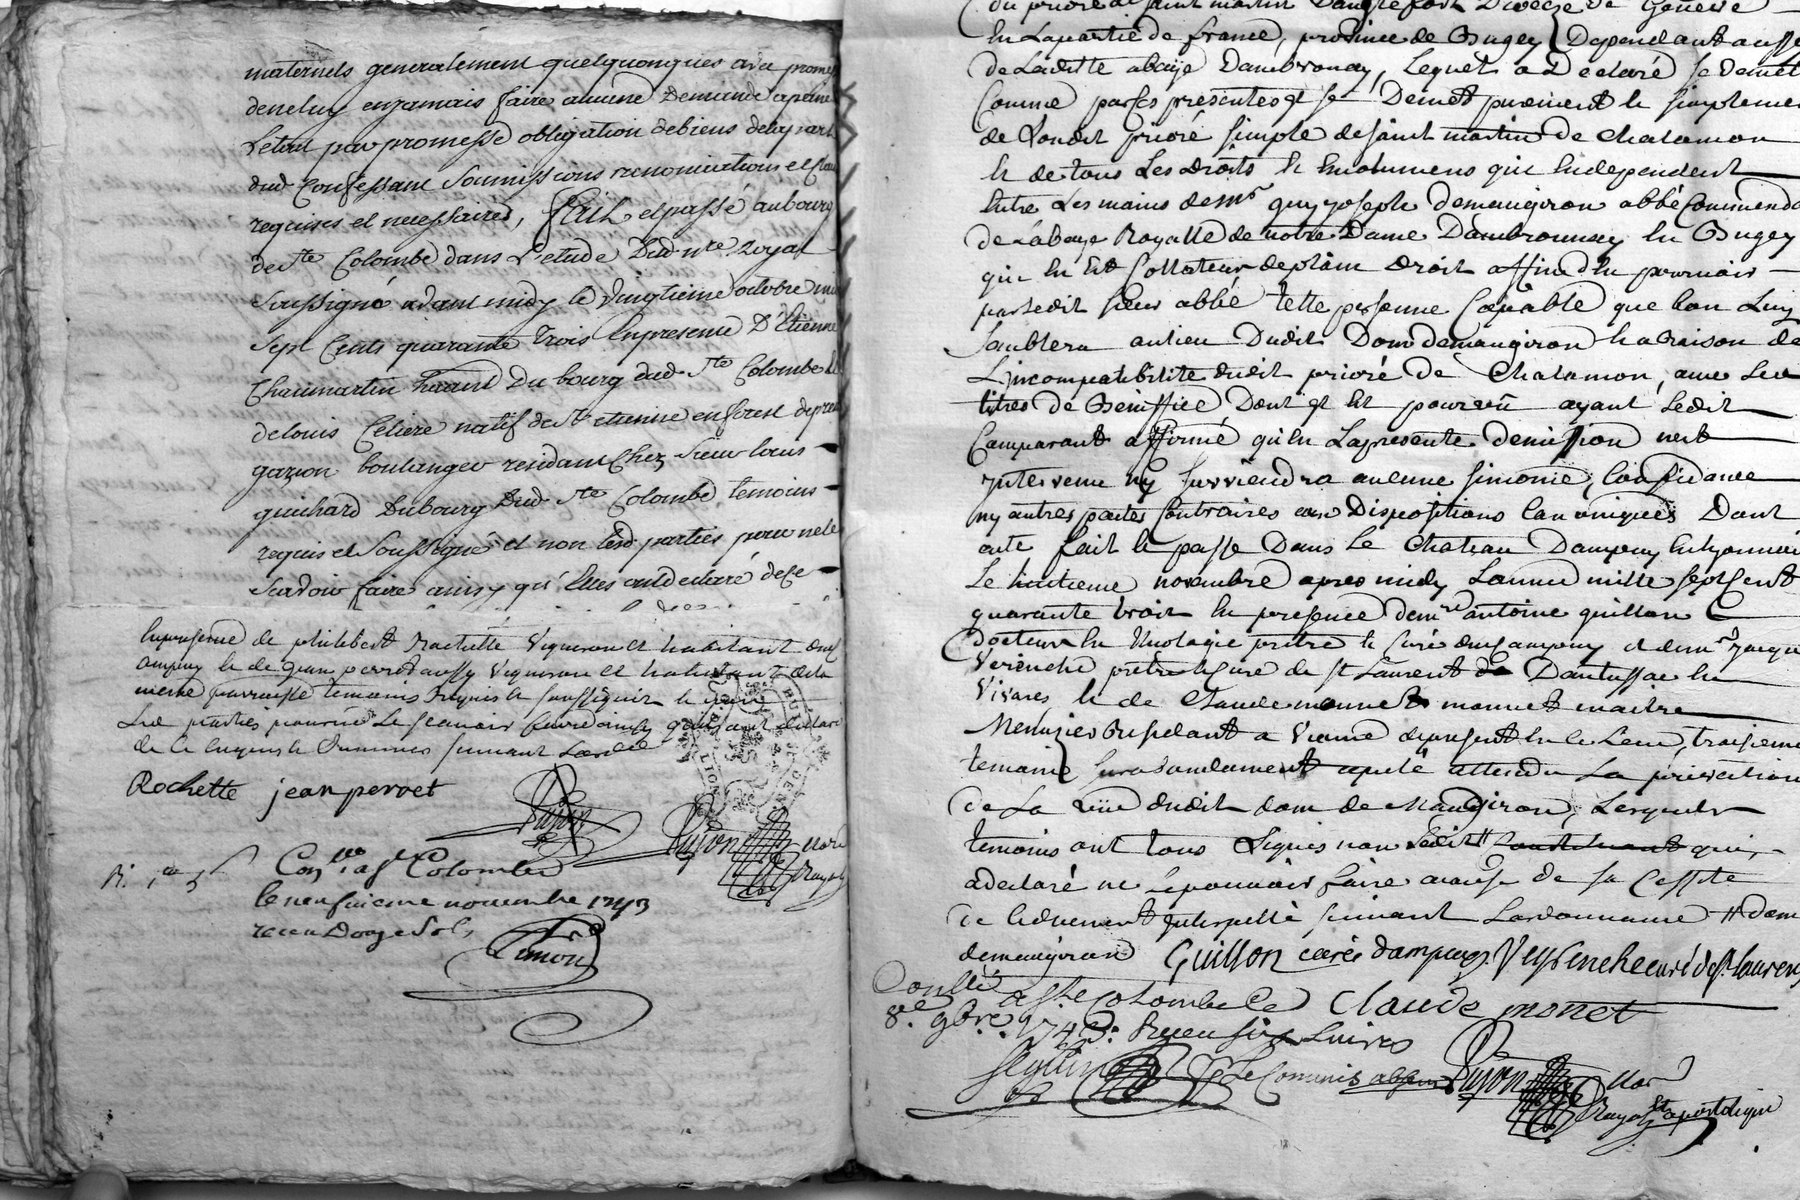 maternels generalement quelquonques avec promesse
deneluy en jamais faire aucune Demande apeine
Letout par promesse obligation debiens delapart
dud Confessant Soumissions renonciations et clau
requises et necessaires, Fait et passé aubourg
de Ste Colombe dans L'etude Dud nre Royal
Soussigné avant midy le Vingtieme octobre mil
Sept Cents quarante trois Enpresence D'Etienne
Chaumartin Du bourg dud Ste Colombe &
delouis Celiere natif de St etienne enforest
garçon boulanger residant Chez Sieur louis
guichard Dubourg Dud Ste Colombe temoins
requis et Soussigné et non lesd parties pour nele
Scavoir faire ainsy qu'Elles ont declaré dece
Enpresence de philibert Rochette Vigneron et habitant
ampuy & de jean perret aussy Vigneron et habitant dela
meme parroisse temoins requis & soussignés &
Les parties pour ne Le scavoir faire ainsy qu'ils ont declaré
de ce enquis & Sommés suivant Lord
Rochette jean perret
Dujon Nore
Royal
Conlle a Ste Colombe
le neufvieme novembre 1743
receu Douze Sols
Simon
du prioré de saint martin Danglefort Diocèze de Geneve
En Lapartie de france, province de Bugey Dependant aussy
de Laditte abaÿe Dambronay, Lequel a Declaré se Demet
Comme par ses presentes il se Demet purement & simplement
de Sondit prioré simple de saint martin de Chalamon
& de tous Les droits & Emolumens qui Endependent
Entre Les mains de mre guy joseph demaugiron abbé Commenda
de L'abaye Royalle de notre Dame Dambronnay En Bugey
qui En Est Collateur deplain droit affin d'En pourvoir
par Ledit sieur abbé telle personne Capable que bon Luy
Semblera aulieu Dudit Dom demaugiron & a Raison de
L'incompatibilité dudit prioré de Chalamon, avec Les
titres de Beniffice Dont il Est pourvû ayant Ledit
Comparant affirmé qu'En Lapresente demission nest
Intervenu ny surviendra aucune simonie, Confidance
ny autres pactes Contraires aux Dispositions Canoniques Dont
acte fait & passé Dans Le Chateau Dampuy En lyonnois
Le huitieme novembre apres midy Lannee mille sept Cent
quarante trois En presence de mre antoine guillon
docteur En theologie prètre & curé dud ampuy et de mre jacque
Vereneche prètre & cure de St Laurent Dantussac En
Vivares & de Claude monnet maitre
Menuzier residant a Vienne de present En ce Lieu, troisieme
temoin surabondament apellé attendu La privation
de La vüe dudit dom de Maugiron, Lesquels
temoins ont tous Signés non Ledit qui,
a declaré ne Lepouvoir faire acause de sa Cessité
de ce duement Interpellé suivant Lordonnance # dom
demaugiron Guillon curé dampuy Veyreneche curé de st laurent
Conllé a Ste Colombe Ce Claude monet
8e 9bre 1743 Receu six Livres
Le Commis Dujon Nore
Royal & apostolique